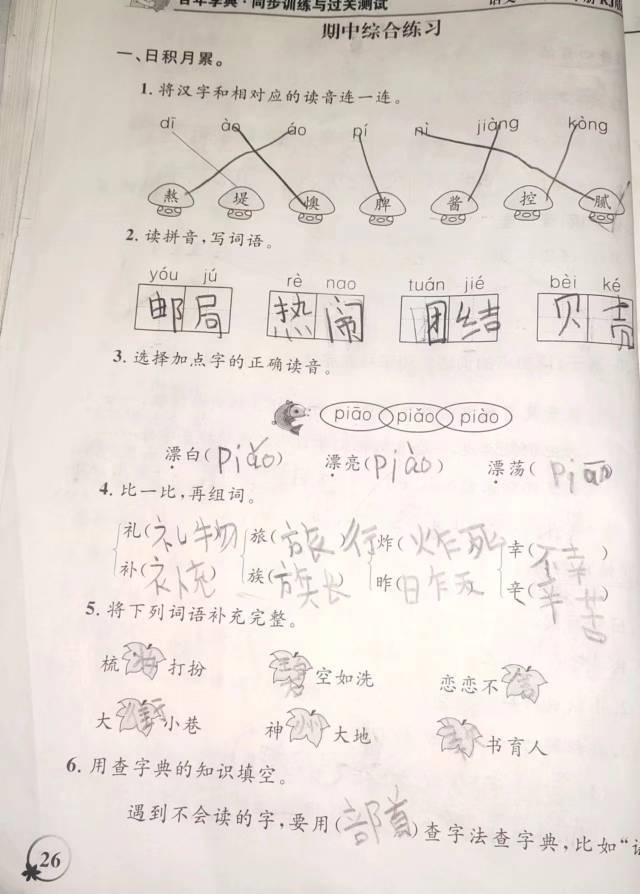 百年学典·同步训练与过关测试
期中综合练习
一、日积月累。
1. 将汉字和相对应的读音连一连。
dī ào áo pí nì jiàng kòng
熬 堤 懊 脾 酱 控 腻
2. 读拼音,写词语。
yóu jú rè nao tuán jié bèi ké
邮局 热闹 团结 贝壳
3. 选择加点字的正确读音。
piāo piǎo piào
漂白(piǎo) 漂亮(piào) 漂荡(piāo)
4. 比一比,再组词。
礼(礼物) 旅(旅行) 炸(炸死) 幸(不幸)
补(补充) 族(族长) 昨(昨天) 辛(辛苦)
5. 将下列词语补充完整。
梳 打扮 碧空如洗 恋恋不舍
大街小巷 神州大地 书育人
6. 用查字典的知识填空。
遇到不会读的字,要用(部首)查字法查字典,比如“
26